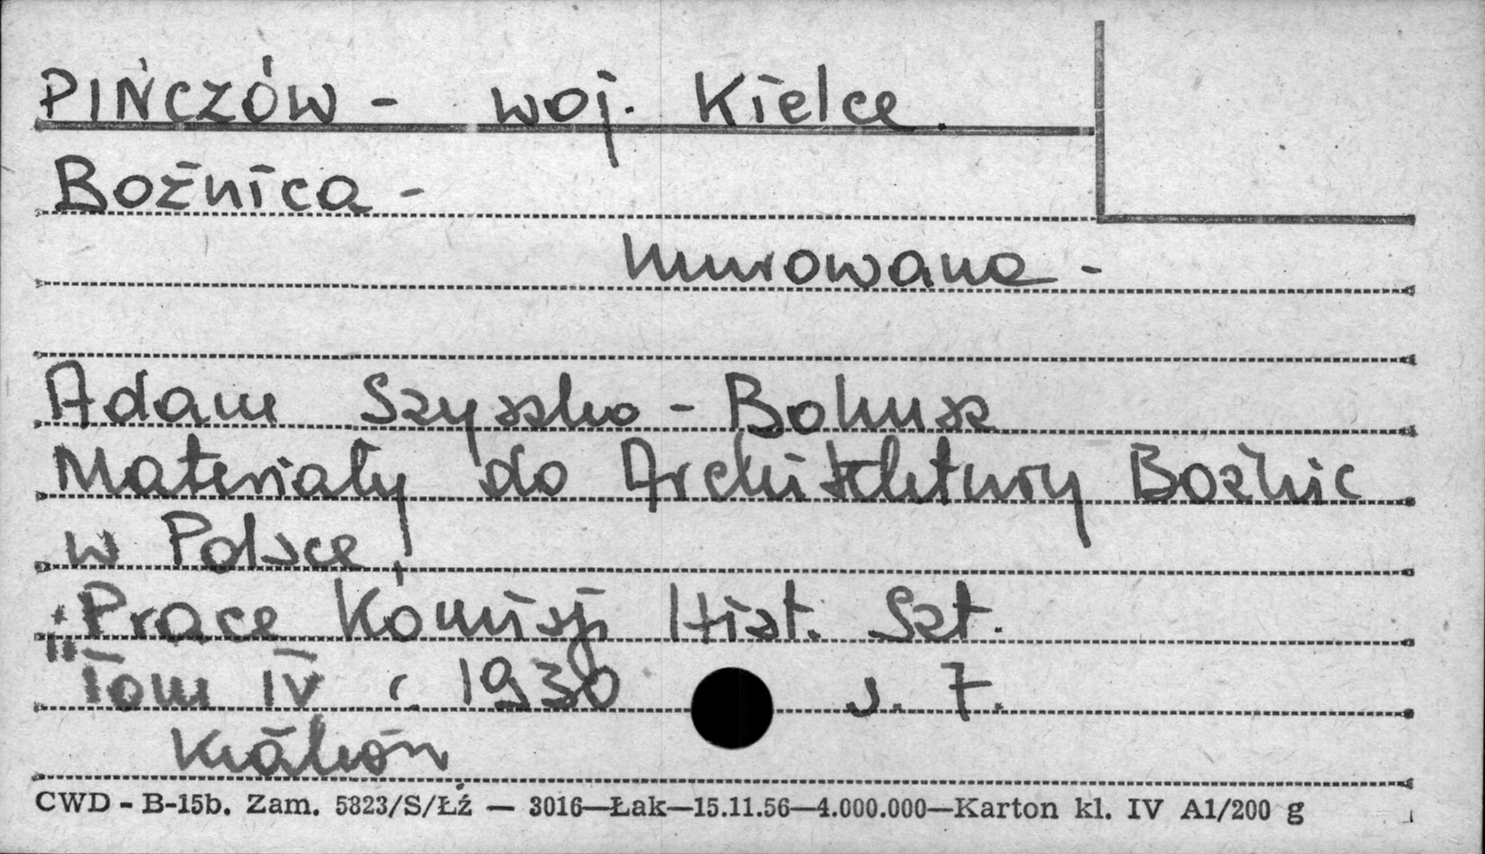 PIŃCZÓW - woj. Kielce.
Bożnica -
murowana -
Adam Szyszko - Bohusz
Materiały do Architektury Bożnic
w Polsce,
"Prace Komisji Hist. Szt.
Tom IV r. 1930 s. 7.
Kraków
CWD - B-15b. Zam. 5823/S/Łź — 3016—Łak—15.11.56—4.000.000—Karton kl. IV A1/200 g